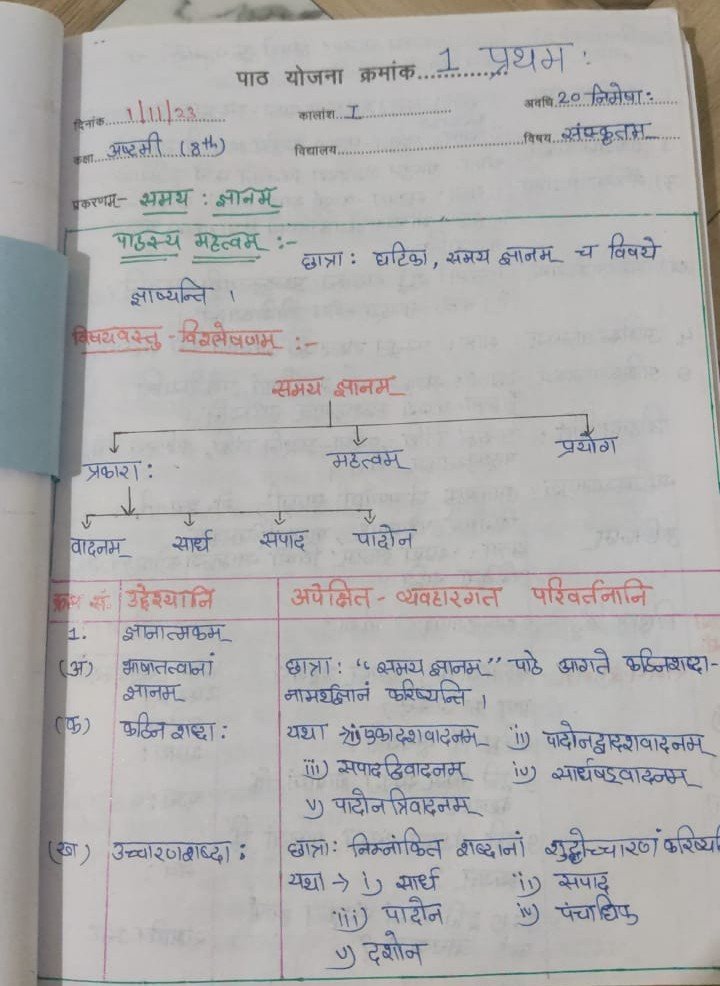 पाठ योजना क्रमांक 1 प्रथम :
दिनांक 1/11/23 कालांश I अवधि 20 निमेषा :
कक्षा अष्टमी (8th) विद्यालय विषय संस्कृतम्
प्रकरणम् - समय : ज्ञानम्
पाठस्य महत्वम् :- छात्रा : घटिका, समय ज्ञानम् च विषये
ज्ञाष्यन्ति ।
विषयवस्तु - विश्लेषणम् :-
समय ज्ञानम्
प्रकारा : महत्वम् प्रयोग
वादनम् सार्ध सपाद पादोन
क्रम सं. उद्देश्यानि अपेक्षित - व्यवहारगत परिवर्तनानि
1. ज्ञानात्मकम्
(अं) भाषातत्वानां छात्रा : “ समय ज्ञानम् ” पाठे आगते कठिनशब्दा-
ज्ञानम् नामर्थज्ञानं करिष्यन्ति ।
(क) कठिन शब्दा : यथा → i) एकादशवादनम् ii) पादोनद्वादशवादनम्
iii) सपादद्विवादनम् iv) सार्धषड्वादनम्
v) पादोनत्रिवादनम्
(ख) उच्चारणशब्दा : छात्रा: निम्नांकित शब्दानां शुद्धोच्चारणं करिष्य
यथा → i) सार्ध ii) सपाद
iii) पादोन iv) पंचाधिक
v) दशोन